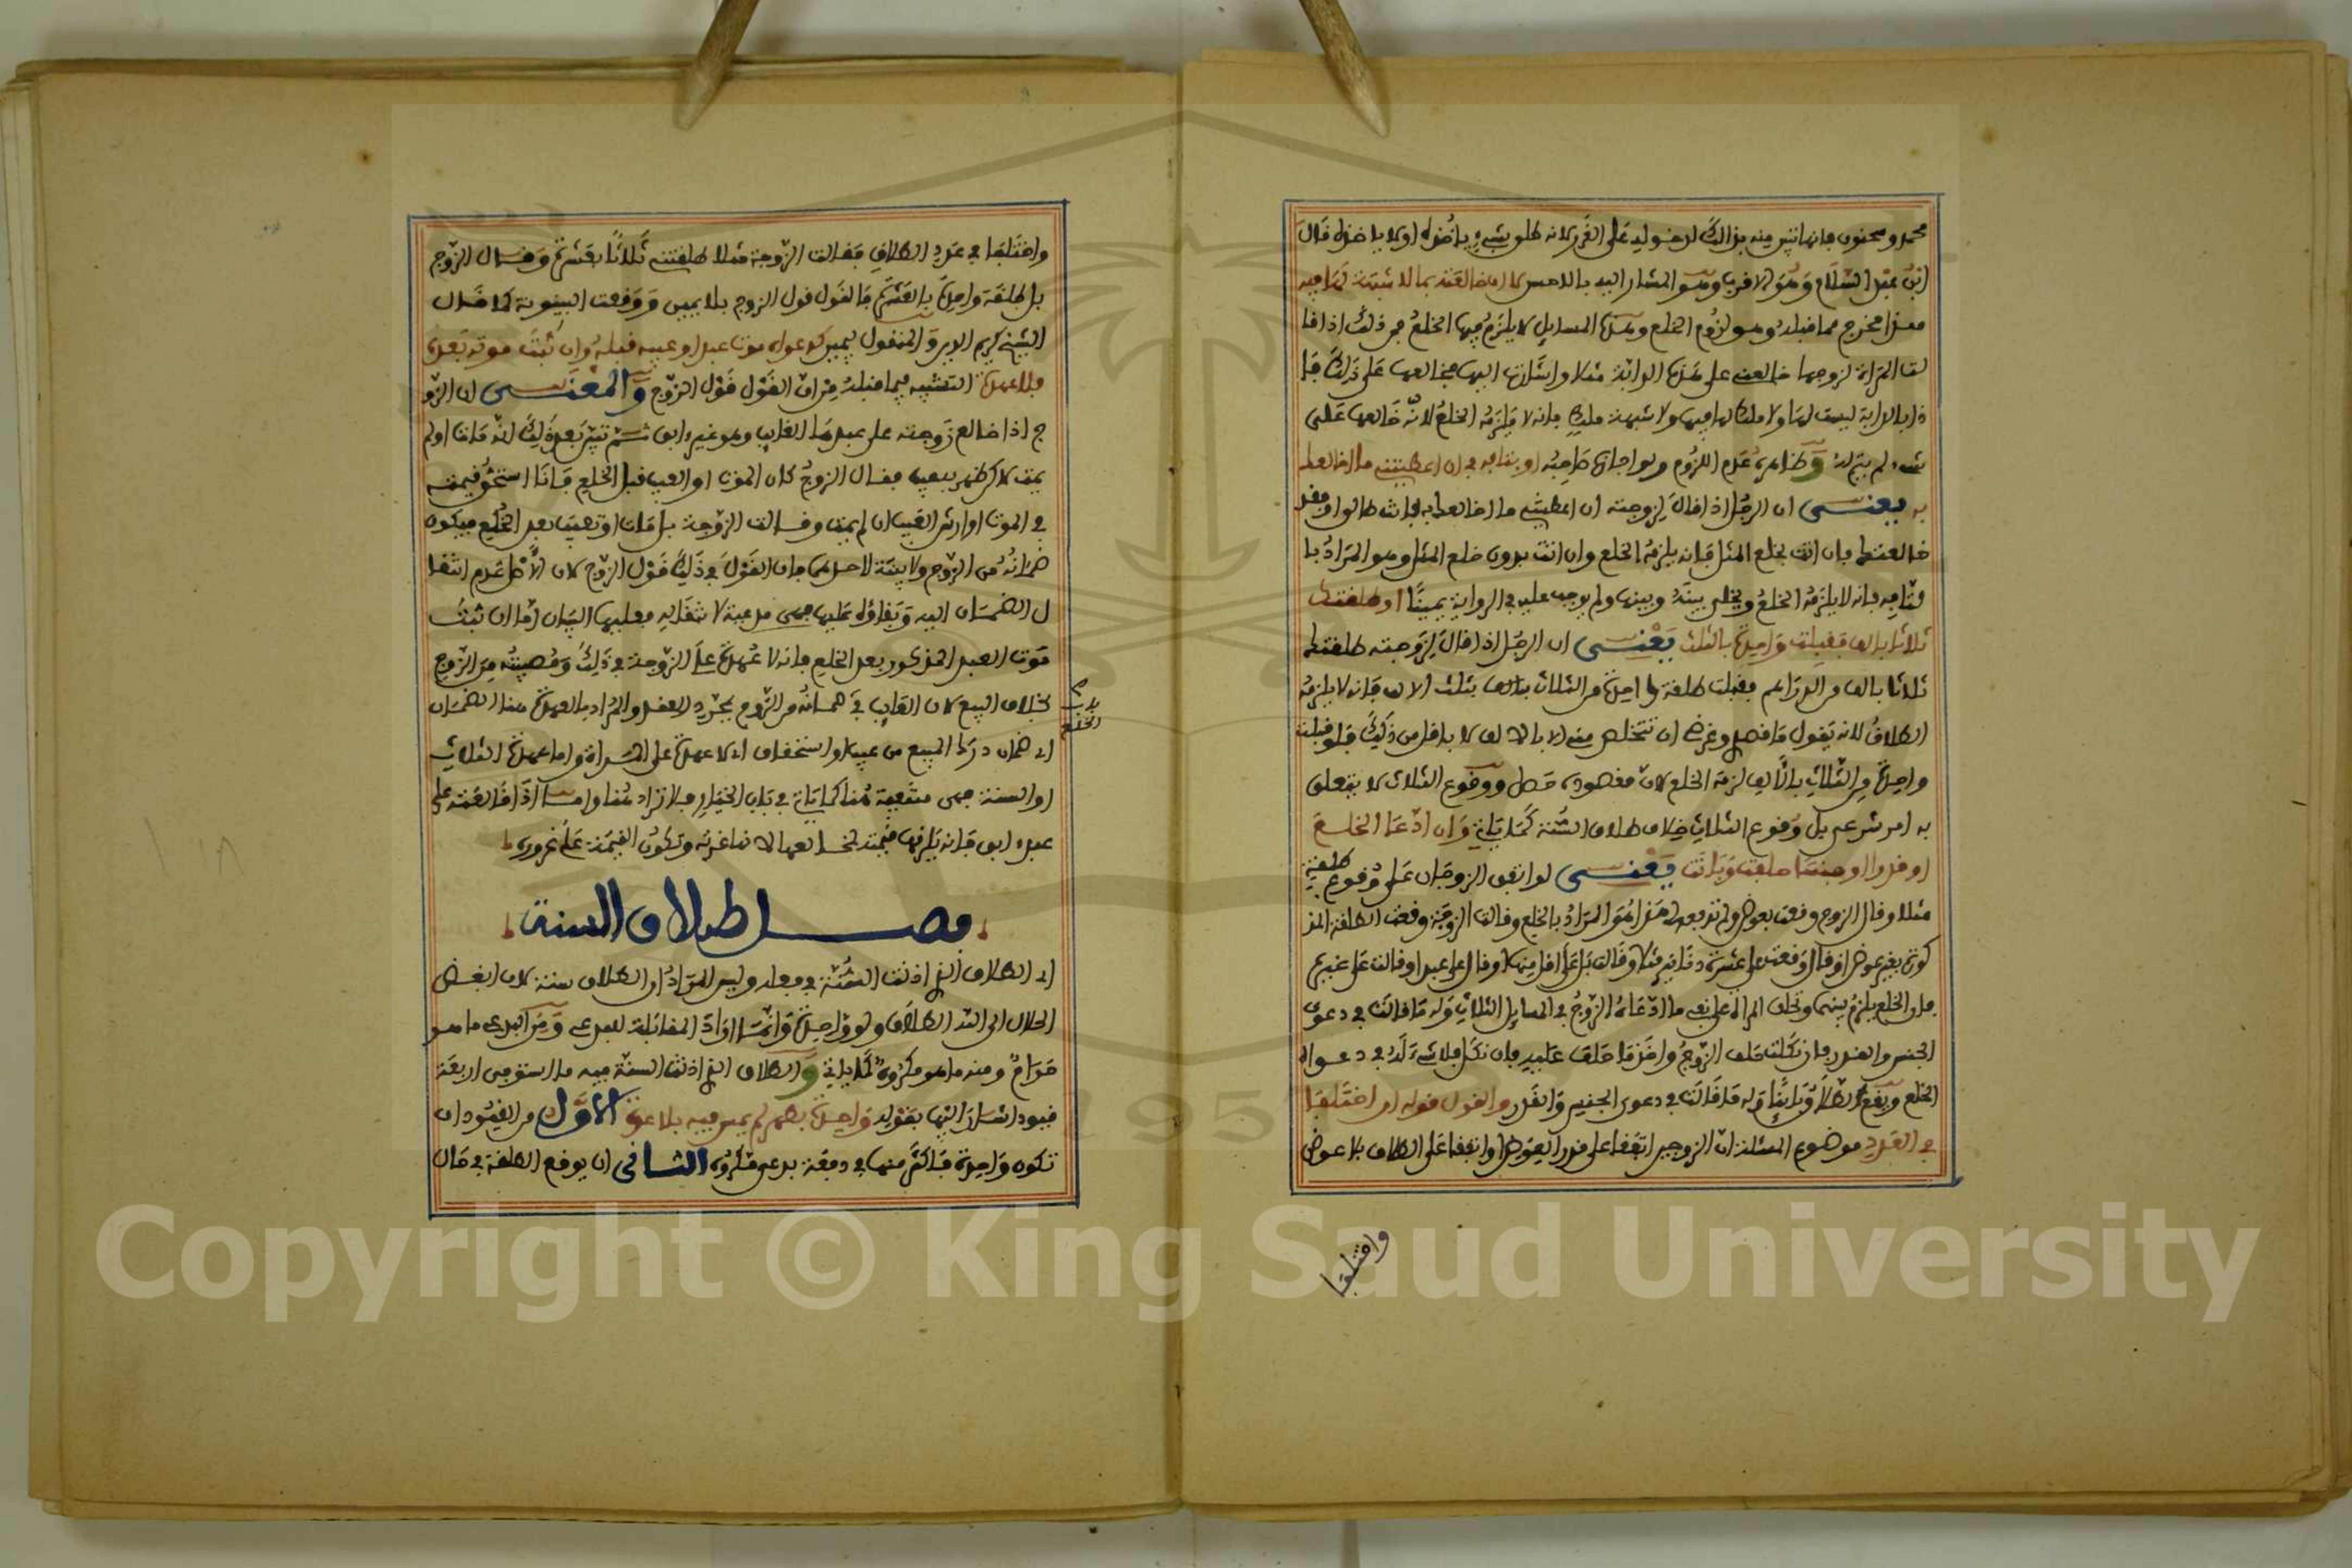 محمد وسحنون فانها تبين منه بذالك لدخوله على الغرر لانه طلق بشيء ياخذه او لا ياخذه قال
ابن عبد السلام وهو الاقرب وهو المشار اليه بالاحسن لا ان خالعته بما لا شبهة لها فيه
هذا مخرج مما قبله وهو لزوم الخلع وهذه المسايل لا يلزم فيها الخلع فمن ذلك اذا قا
لت المراة لزوجها خالعني على هذه الدابة مثلا واشارت اليها فخالعها على ذلك فا
ذا بالدابة ليست لها ولا ملك لها فيها ولا شبهة ملك فانه لا يلزمه الخلع لانه خالعها على
شيء لم يتم له وظاهره عدم اللزوم ولو اجازه صاحبه او بتافه في ان اعطيتني ما اخالعك
به يعنى ان الرجل اذا قال لزوجته ان اعطيتني ما اخالعك به فانت طالق او فقد
خالعتك فان اتت بخلع المثل فانه يلزمه الخلع وان اتت بدون خلع المثل وهو المراد با
لتافه فانه لا يلزمه الخلع ويخلى بينه وبينها ولم يوجب عليه في الرواية يمينا او طلقتك
ثلاثا بالف فقبلت واحدة بالثلث يعنى ان الرجل اذا قال لزوجته طلقتك
ثلاثا بالف من الدراهم فقبلت طلقة واحدة من الثلاث بثلث الالف فانه لا يلزمه
الطلاق لانه يقول ما قصدي وغرضي ان تتخلص مني الا بالالف لا باقل من ذلك فلو قبلت
واحدة من الثلاث بالالف لزمه الخلع لان مقصوده حصل ووقوع الثلاث لا يتعلق
به امر شرعي بل وقوع الثلاث خلاف طلاق السنة كما ياتي وان ادعا الخلع
او قدرا او جنسا حلفت وبانت يعنى لو اتفق الزوجان على وقوع طلقة
مثلا وقال الزوج وقعت بعوض ولم تدفعه هذا هو المراد بالخلع وقالت الزوجة وقعت الطلقة المذ
كورة بغير عوض او قال وقعت على عشرة دنانير مثلا وقالت بل على اقل منها او قال على عبد او قالت على غيره
فان الخلع يلزم بينهما وتحلف المراة على نفي ما ادعاه الزوج في المسايل الثلاث وله ما قالت في دعوى
الجنس والقدر فان نكلت حلف الزوج واخذ ما حلف عليه فان نكل فلا شيء له في دعواه
الخلع ويقع الطلاق باينا وله ما قالت في دعوى الجنس والقدر والقول قوله ان اختلفا
في العدد موضوع المسئلة ان الزوجين اتفقا على قدر العوض او اتفقا على الطلاق بلا عوض
واختلفا
واختلفا في عدد الطلاق فقالت الزوجة مثلا طلقتني ثلاثا بعشرة وقال الزوج
بل طلقة واحدة بالعشرة فالقول قول الزوج بلا يمين ووقعت البينونة كما قال
الشيخ كريم الدين والمنقول بيمين كدعواه موت عبد او عيبه قبله وان ثبت موته بعده
فلا عهدة التشبيه فيما قبله من ان القول قول الزوج والمعنى ان الزو
ج اذا خالع زوجته على عبدها الغايب وهو غير ابق ثم تبين بعد ذلك انه مات او لم
يمت لاكن ظهر به عيب فقال الزوج كان الموت او العيب قبل الخلع فانا استحق قيمته
في الموت او ارش العيب ان لم يمت وقالت الزوجة بل مات او تعيب بعد الخلع فيكون
ضمانه من الزوج ولا بينة لاحدهما فان القول في ذلك قول الزوج لان الاصل عدم انتقا
ل الضمان اليه وبقاؤه عليها فهي مدعية لانتقاله فعليها البيان اما ان ثبت
موت العبد المذكور بعد الخلع فانه لا عهدة على الزوجة في ذلك ومصيبته من الزوج
بخلاف البيع لان الغايب في ضمانه من الزوج بمجرد العقد والمراد بالعهدة هنا الضمان
اي ضمان درك المبيع من عيب او استحقاق اي لا عهدة على المراة واما عهدة الثلاث
او السنة فهي منتفية هنا كما ياتي في باب الخيار فلا تراد هنا واما اذا خالعته على
عبد ابق فانه يلزمها قيمته لخ العها لا نها غرته وتكون القيمة على غرره
فصل طلاق السنة
اي الطلاق الذي اذنت السنة في فعله وليس المراد ان الطلاق سنة لان ابغض
الحلال الى الله الطلاق ولو واحدة وانما ارادة المقابلة للبدعي ومن البدعي ما هو
حرام ومنه ما هو مكروه كما ياتي والطلاق الذي اذنت السنة فيه ما استوفى اربعة
قيود اشار اليها بقوله واحدة بطهر لم يمس فيه بلا عدة الاول من القيود ان
تكون واحدة فاكثر منها في دفعة بدعي مكروه الثاني ان يوقع الطلقة في حال